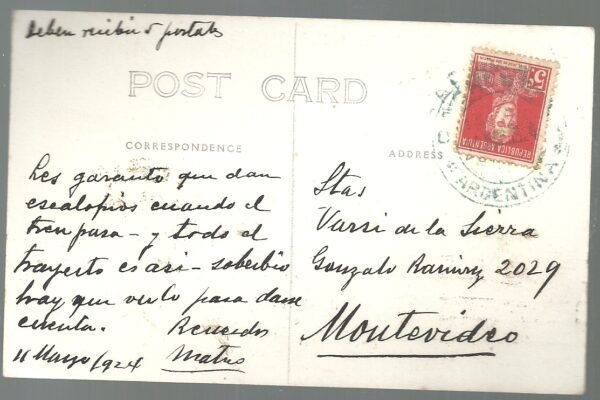 Deben recibir 5 postales
POST CARD
CORRESPONDENCE
Les garanto que dan
escalofrios cuando el
tren pasa - y todo el
trayecto es asi - soberbio
hay que verlo para darse
cuenta.
Recuerdos
11 Mayo/924
Mateo
ADDRESS
5c
REPUBLICA ARGENTINA
ARGENTINA
Stas
Varsi de la Sierra
Gonzalo Ramirez 2029
Montevideo